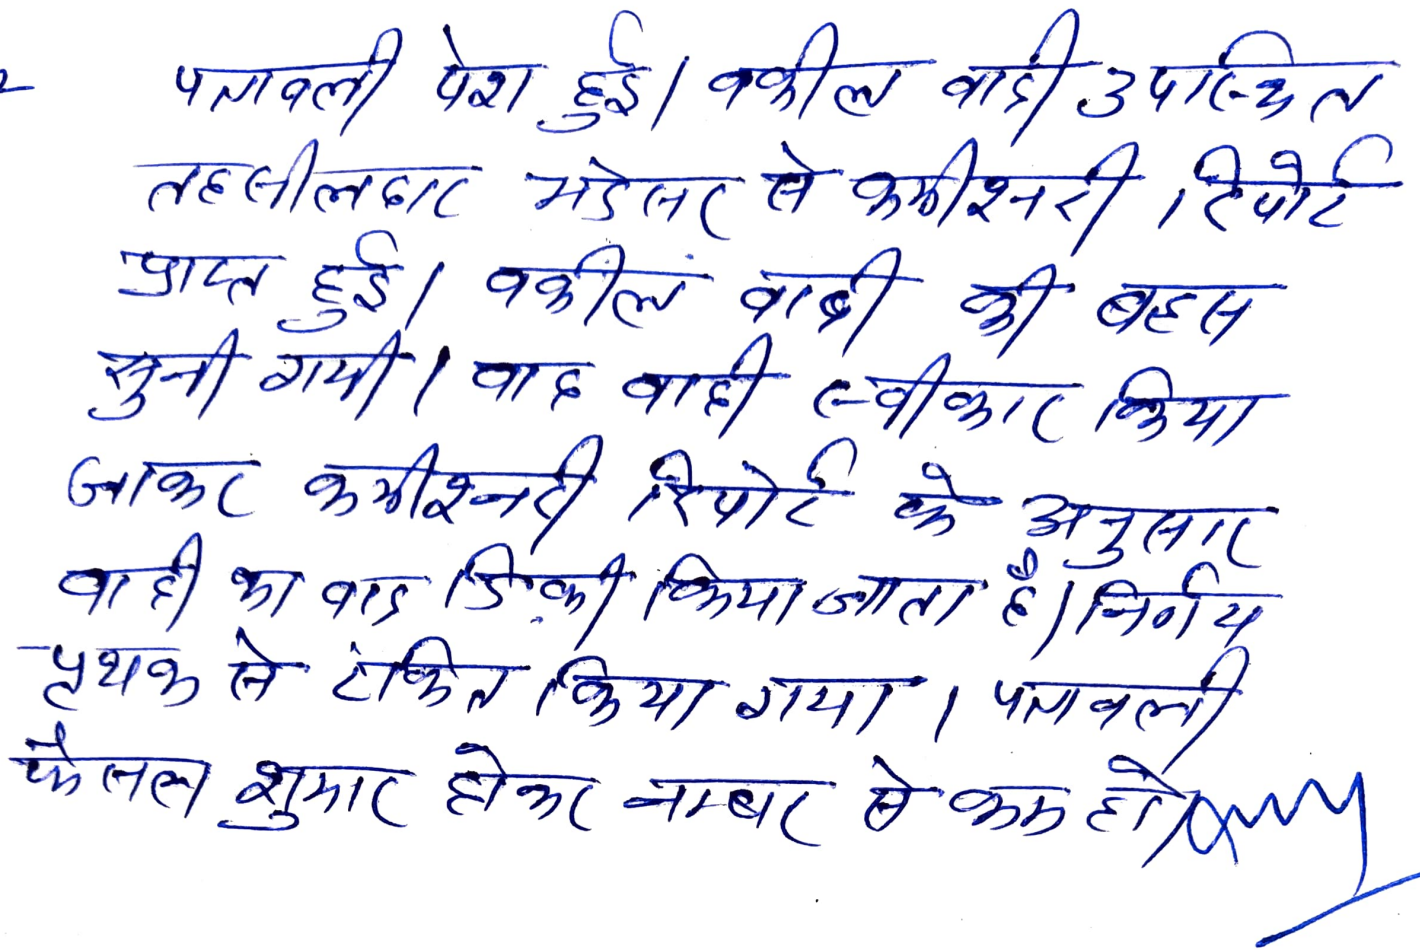 पत्रावली पेश हुई। वकील वादी उपस्थित
तहसीलदार से कमीश्नरी रिपोर्ट
प्राप्त हुई। वकील वादी की बहस
सुनी गयी। वाद वादी स्वीकार किया
जाकर कमीश्नरी रिपोर्ट के अनुसार
वादी का वाद डिक्री किया जाता है। निर्णय
पृथक से टंकित किया गया। पत्रावली
फैसल शुमार होकर नम्बर से कम हो।